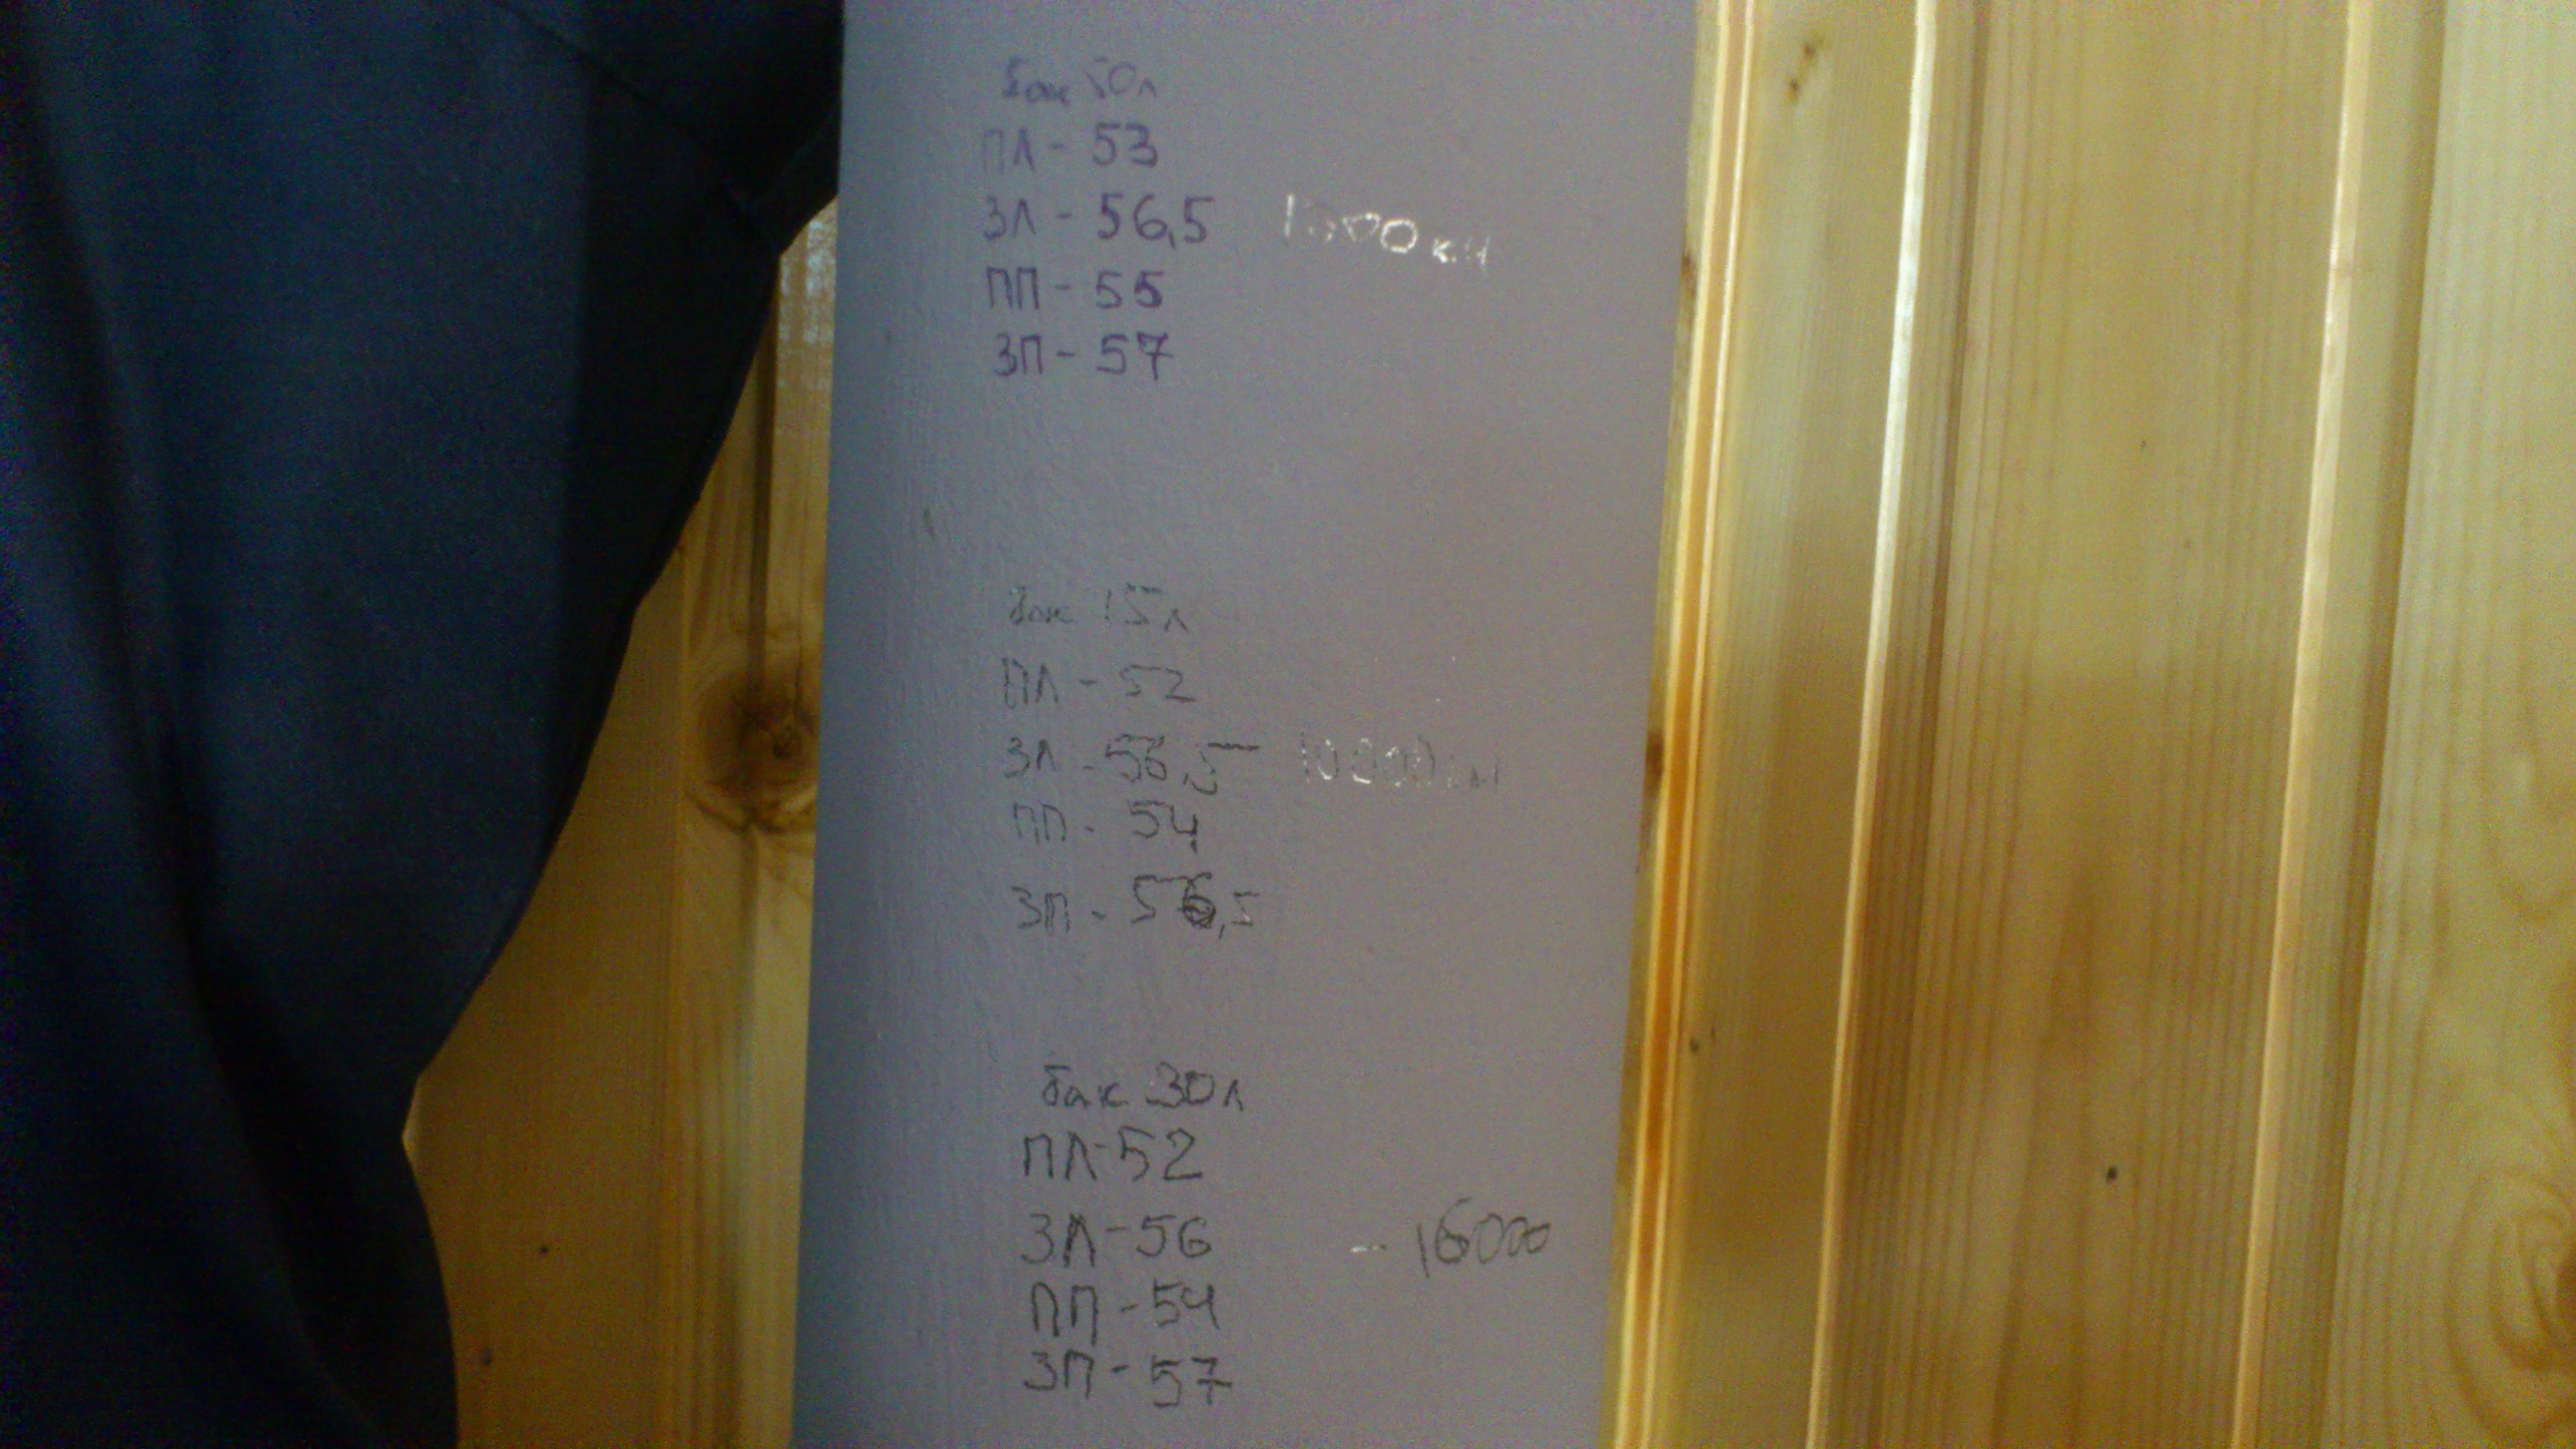 бак 50л
ПЛ - 53
ЗЛ - 56,5 1000 км
ПП - 55
ЗП - 57
бак 15л
ПЛ - 52
ЗЛ - 56,5 10000 км
ПП - 54
ЗП - 56,5
бак 30л
ПЛ-52
ЗЛ-56 - 16000
ПП -54
ЗП - 57